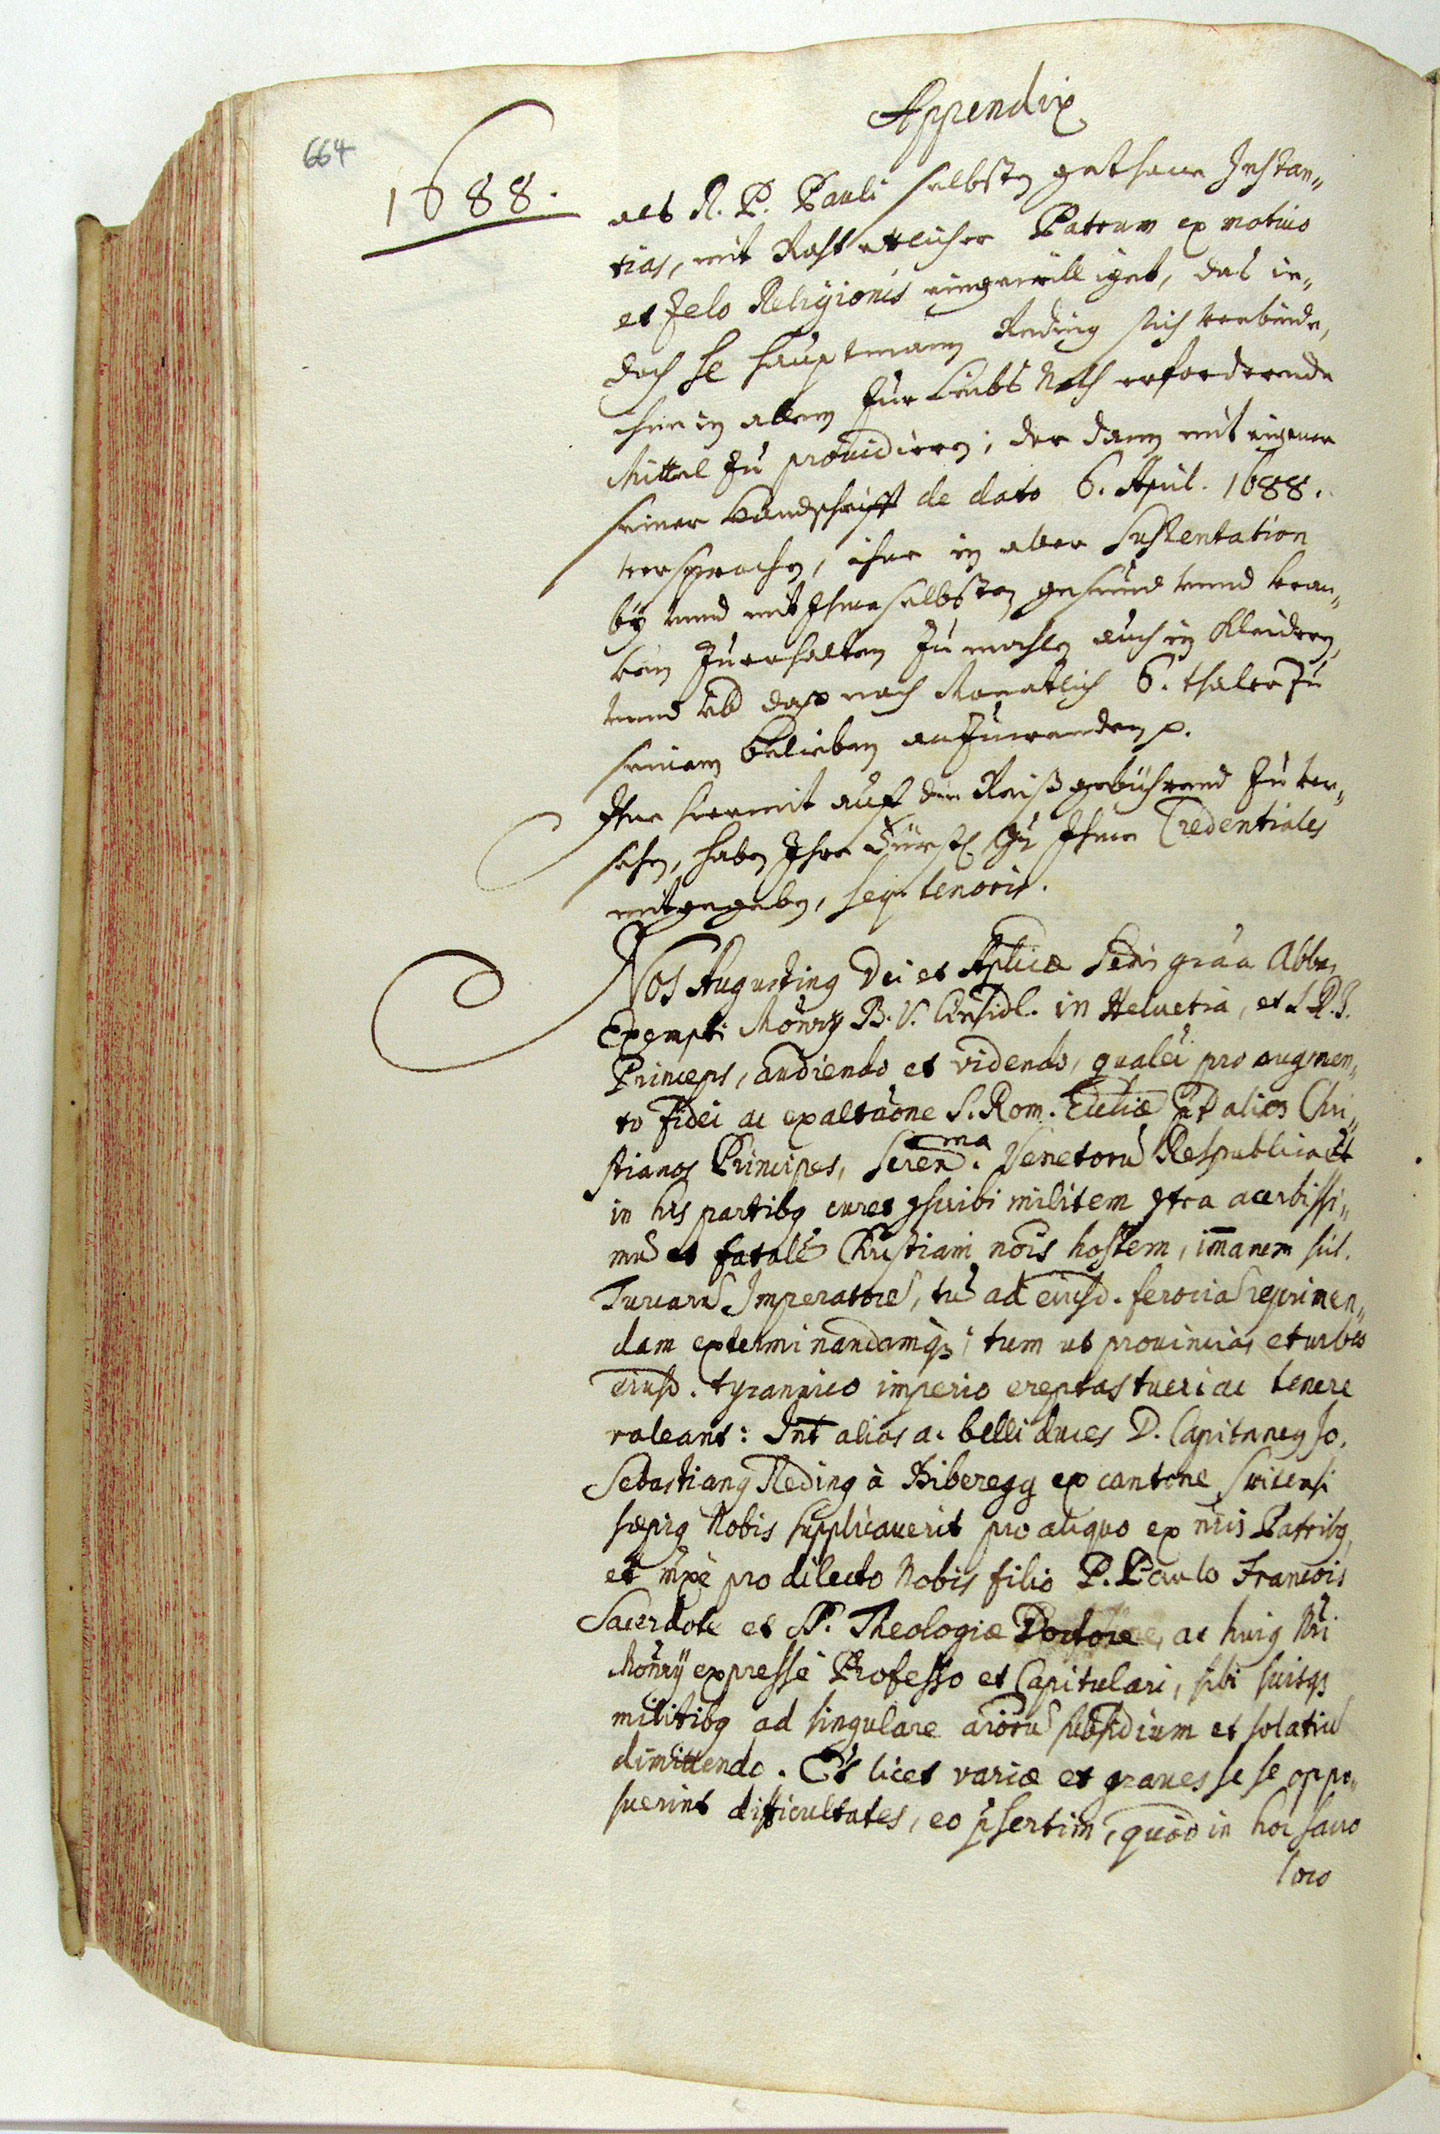 Appendix
664
1688.
als R. P. Pauli selbsten gethane Instan„
tias, mit Raht ettlicher Patrum ex motivo
et zelo Religionis eingewilliget, das ie„
doch H Hauptmann Reding sich verbinde,
ihne in allem zur Leibs Noth erforderende
Mittel zu providiren; der dann mit eigener
seiner Handschrifft de dato 6. April. 1688.
versprochen, ihne in aller Sustentation
by und mit Ihme selbsten gesund und kran„
zuerhalten zumahlen auch in Kleideren,
und noch Monatlich 6. thaler zu
seinem Belieben anzuwenden p.
Ihne hiermit auf die Reiß gebührend zu ver„
sehen, haben Ihre Fürstl Gn Ihme Credentiales
mitgegeben, seq. tenoris.
Nos Augustinq Dei et Aplicæ Sedis grãa Abbas
Exempti Monrÿ B. V. Einsidl. in Helvetia, et S. R. I.
Princeps, audiendo et videndo, qualei pro augmen„
to fidei ac exaltãone S. Rom. Eccliæ alios Chri„
stianos Principes, Seren.ma Venetorũ Respublica
in his partibq curet 9scribi militem 9tra acerbissi„
mũ et fatalẽ Christiani nõis hostem, im̃anem scil.
Turcarũ Imperatorẽ, tũ ad eiusd. ferociã reprimen„
dam exterminandamq3; tum ut provincias et urbes
eiusd. tyrannico imperio ereptas tueri ac tenere
valeant: Int̃ alios ac belli duces D. Capitaneq Jo.
Sebastianq Reding à Biberegg ex cantone Svitensi
sæpiq Nobis supplicaverit pro aliquo ex nr̃is Patribq,
et nr̃e pro dilecto Nobis filio P. Paulo Francois
Sacerdote et SS. Theologiæ Doctore, ac huiq Nr̃i
Monrÿ expresse Professo et Capitulari, sibi suisq3
militibq ad singulare aĩorũ subsidium et solatiũ
dimittendo. Et licet variæ et graves se se oppo„
suerint difficultates, eo p̃sertim, quòd in hoc sacro
loco